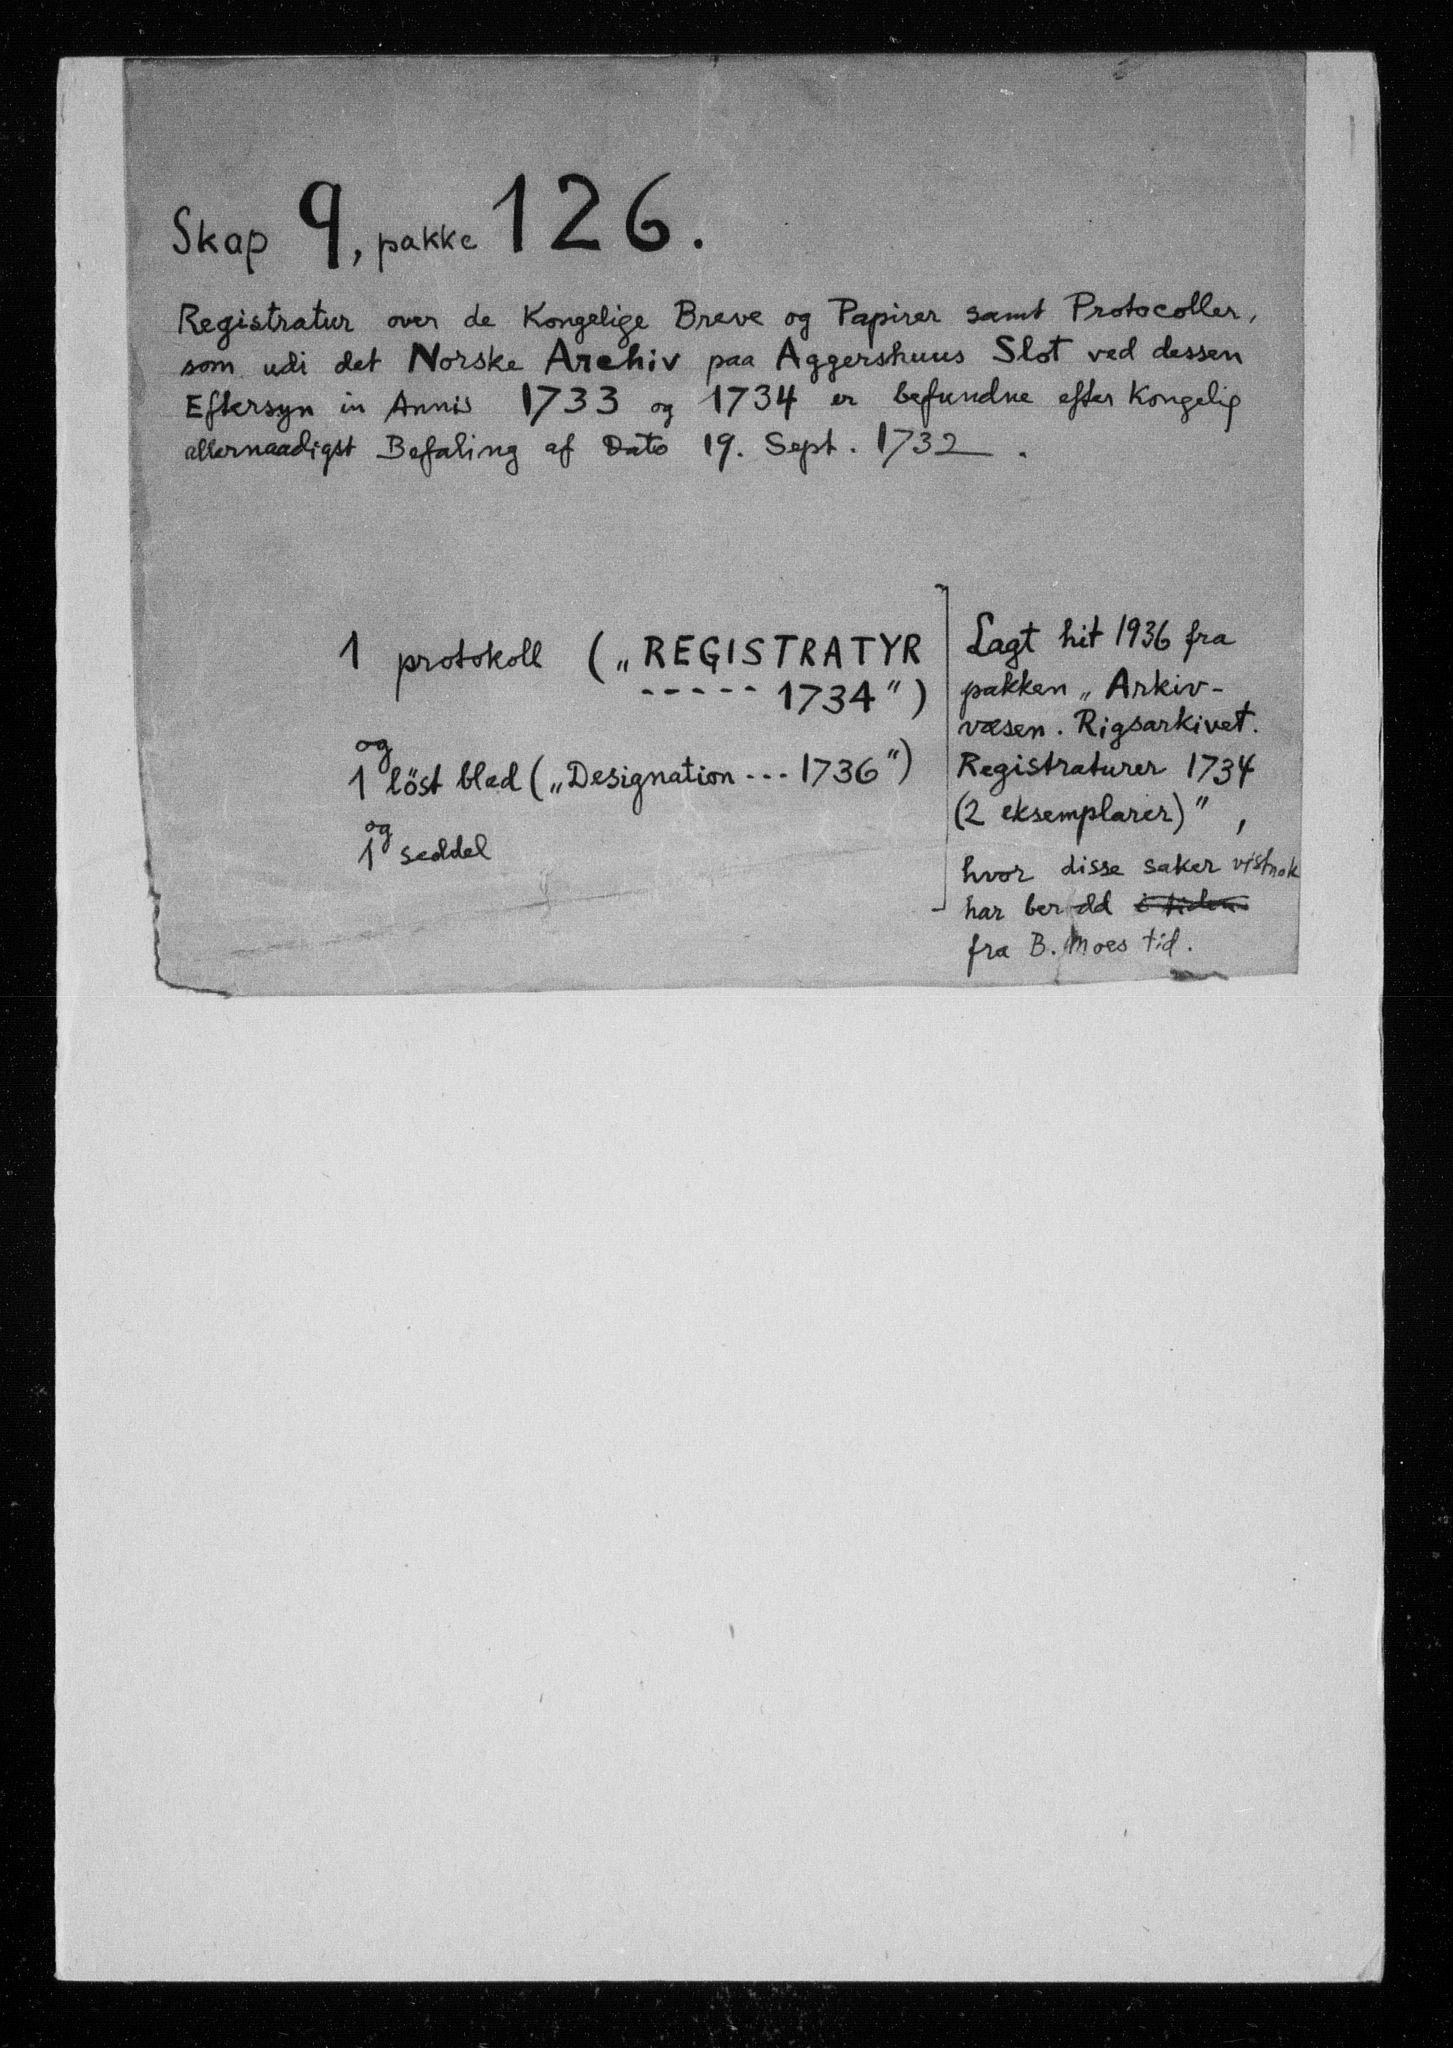 Skap 9, pakke 126.
Registratur over de Kongelige Breve og Papirer samt Protocoller,
som udi det Norske Archiv paa Aggershuus Slot ved dessen
Eftersyn in Annis 1733 og 1734 er befundne efter Kongelig
allernaadigst Befaling af Dato 19. Sept. 1732.
1 protokoll („REGISTRATYR
----- 1734")
og
1 löst blad („Designation --- 1736")
og
1 seddel
Lagt hit 1936 fra
pakken „Arkiv-
væsen. Rigsarkivet.
Registraturer 1734
(2 eksemplarer)",
hvor disse saker vistnok
har bero dd i tiden
fra B. Moes tid.